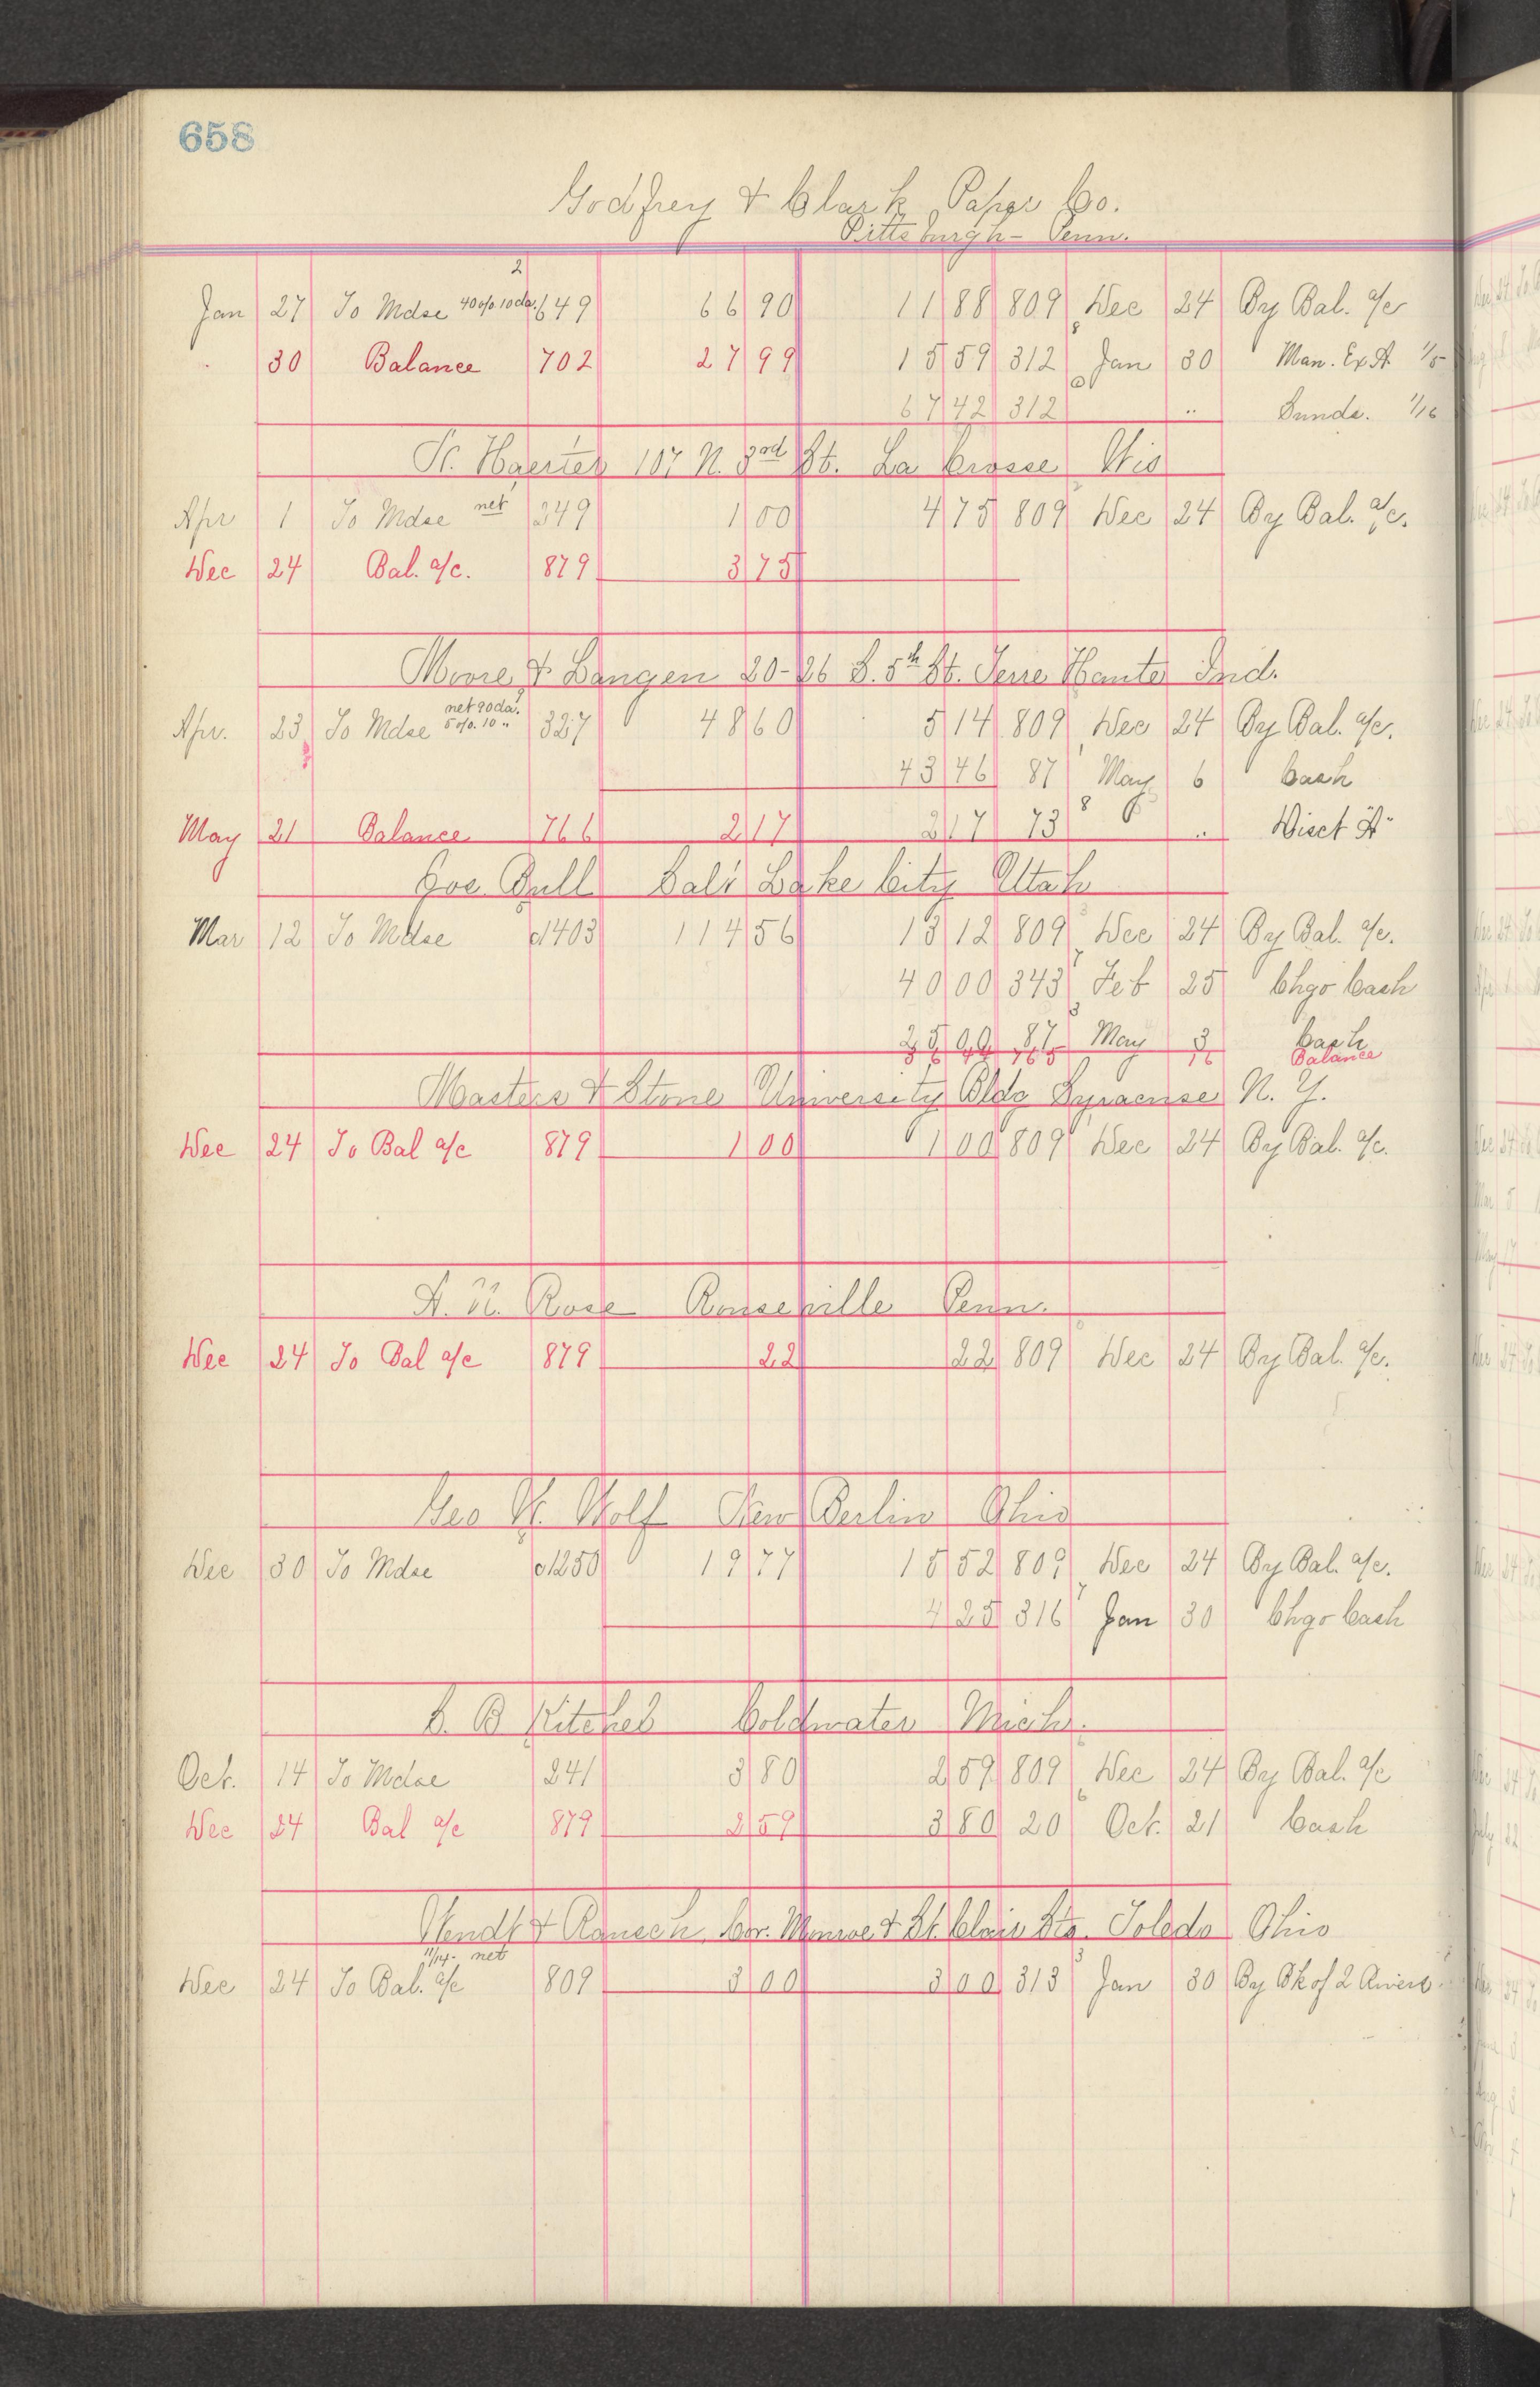 658
Godfrey & Clark Paper Co.
Pittsburgh - Penn.
2
Jan 27 To Mdse 40 o/o. 10 da. 649 66 90 11 88 809 Dec 24 By Bal. a/c
30 Balance 702 27 99 15 59 312 Jan 30 Man. Ex A 1/5
67 42 312 " Sunds. 1/16
107 N. 3rd St. La Crosse Wis
Apr 1 To Mdse net 249 1 00 4 75 809 Dec 24 By Bal. a/c.
Dec 24 Bal. a/c. 879 3 75
Moore & Langen 20-26 S. 5th St. Terre Haute Ind.
Apr. 23 To Mdse net 90 da. 5 o/o. 10 " 327 48 60 5 14 809 Dec 24 By Bal. a/c.
43 46 87 May 6 Cash
May 21 Balance 766 2 17 2 17 73 8 " Disct "A"
Jos. Bull Salt Lake City Utah
Mar 12 To Mdse c1403 114 56 13 12 809 Dec 24 By Bal. a/c.
40 00 343 Feb 25 Chgo Cash
25 00 87 May 3 Cash
36 44 765 16 Balance
Masters & Stone University Bldg Syracuse N. Y.
Dec 24 To Bal a/c 879 1 00 1 00 809 Dec 24 By Bal. a/c.
A. N. Rose Rouseville Penn.
Dec 24 To Bal a/c 879 22 22 809 Dec 24 By Bal. a/c.
Geo W. Wolf New Berlin Ohio
Dec 30 To Mdse c1250 19 77 15 52 809 Dec 24 By Bal. a/c.
4 25 316 Jan 30 Chgo Cash
C. B Kitchel Coldwater Mich.
Oct. 14 To Mdse 241 3 80 2 59 809 Dec 24 By Bal. a/c
Dec 24 Bal a/c 879 2 59 3 80 20 Oct. 21 Cash
Wendt & Rausch Cor. Monroe & St. Clair Sts. Toledo Ohio
11/14. net
Dec 24 To Bal. a/c 809 3 00 3 00 313 Jan 30 By Bk of 2 Rivers